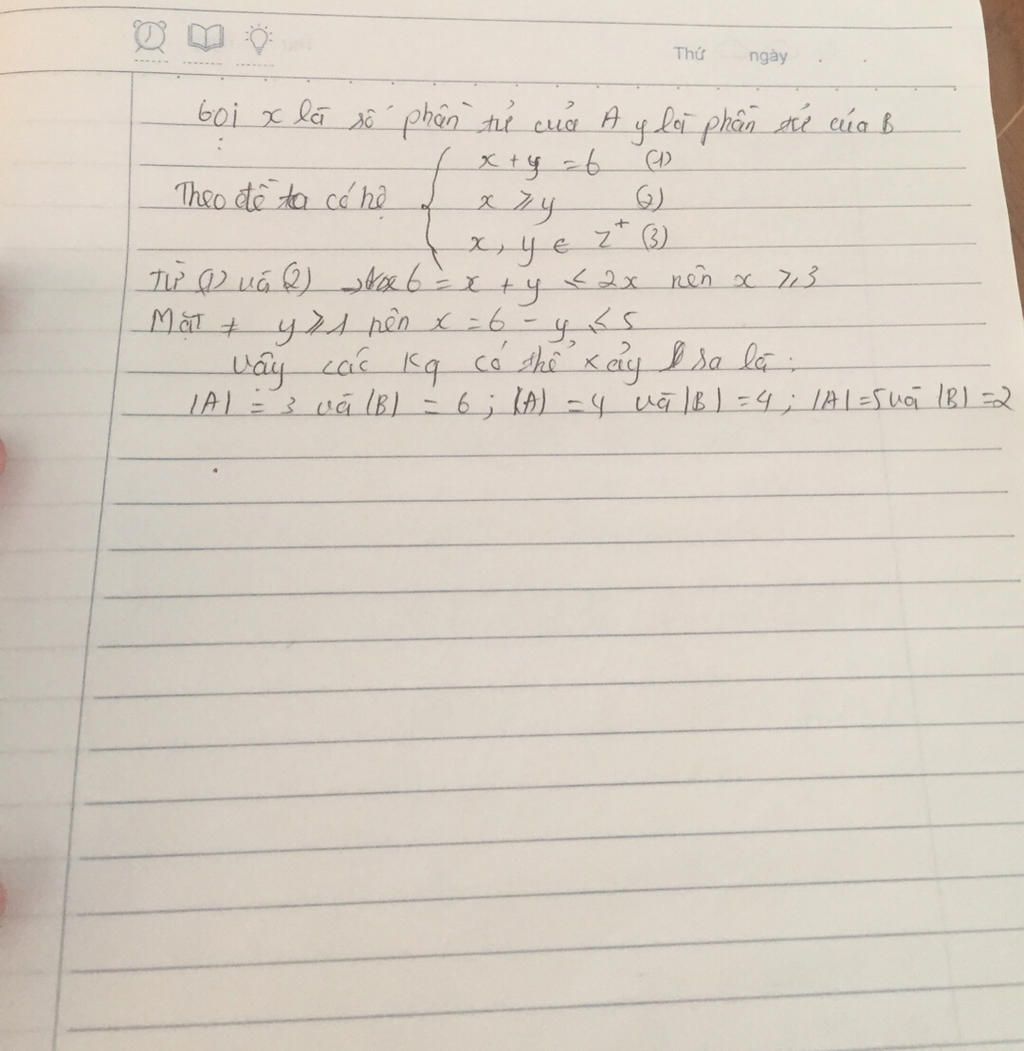 Thứ ngày
Gọi x là số phần tử của A y là phần tử của B
Theo đề ta có hệ { x + y = 6 (1)
x ⩾ y (2)
x, y ∈ Z⁺ (3)
Từ (1) và (2) → 6 = x + y ⩽ 2x nên x ⩾ 3
Mặt ≠ y ⩾ 1 nên x = 6 - y ⩽ 5
Vậy các Kq có thể xảy sa là:
|A| = 3 và |B| = 6; |A| = 4 và |B| = 4; |A| = 5 và |B| = 2